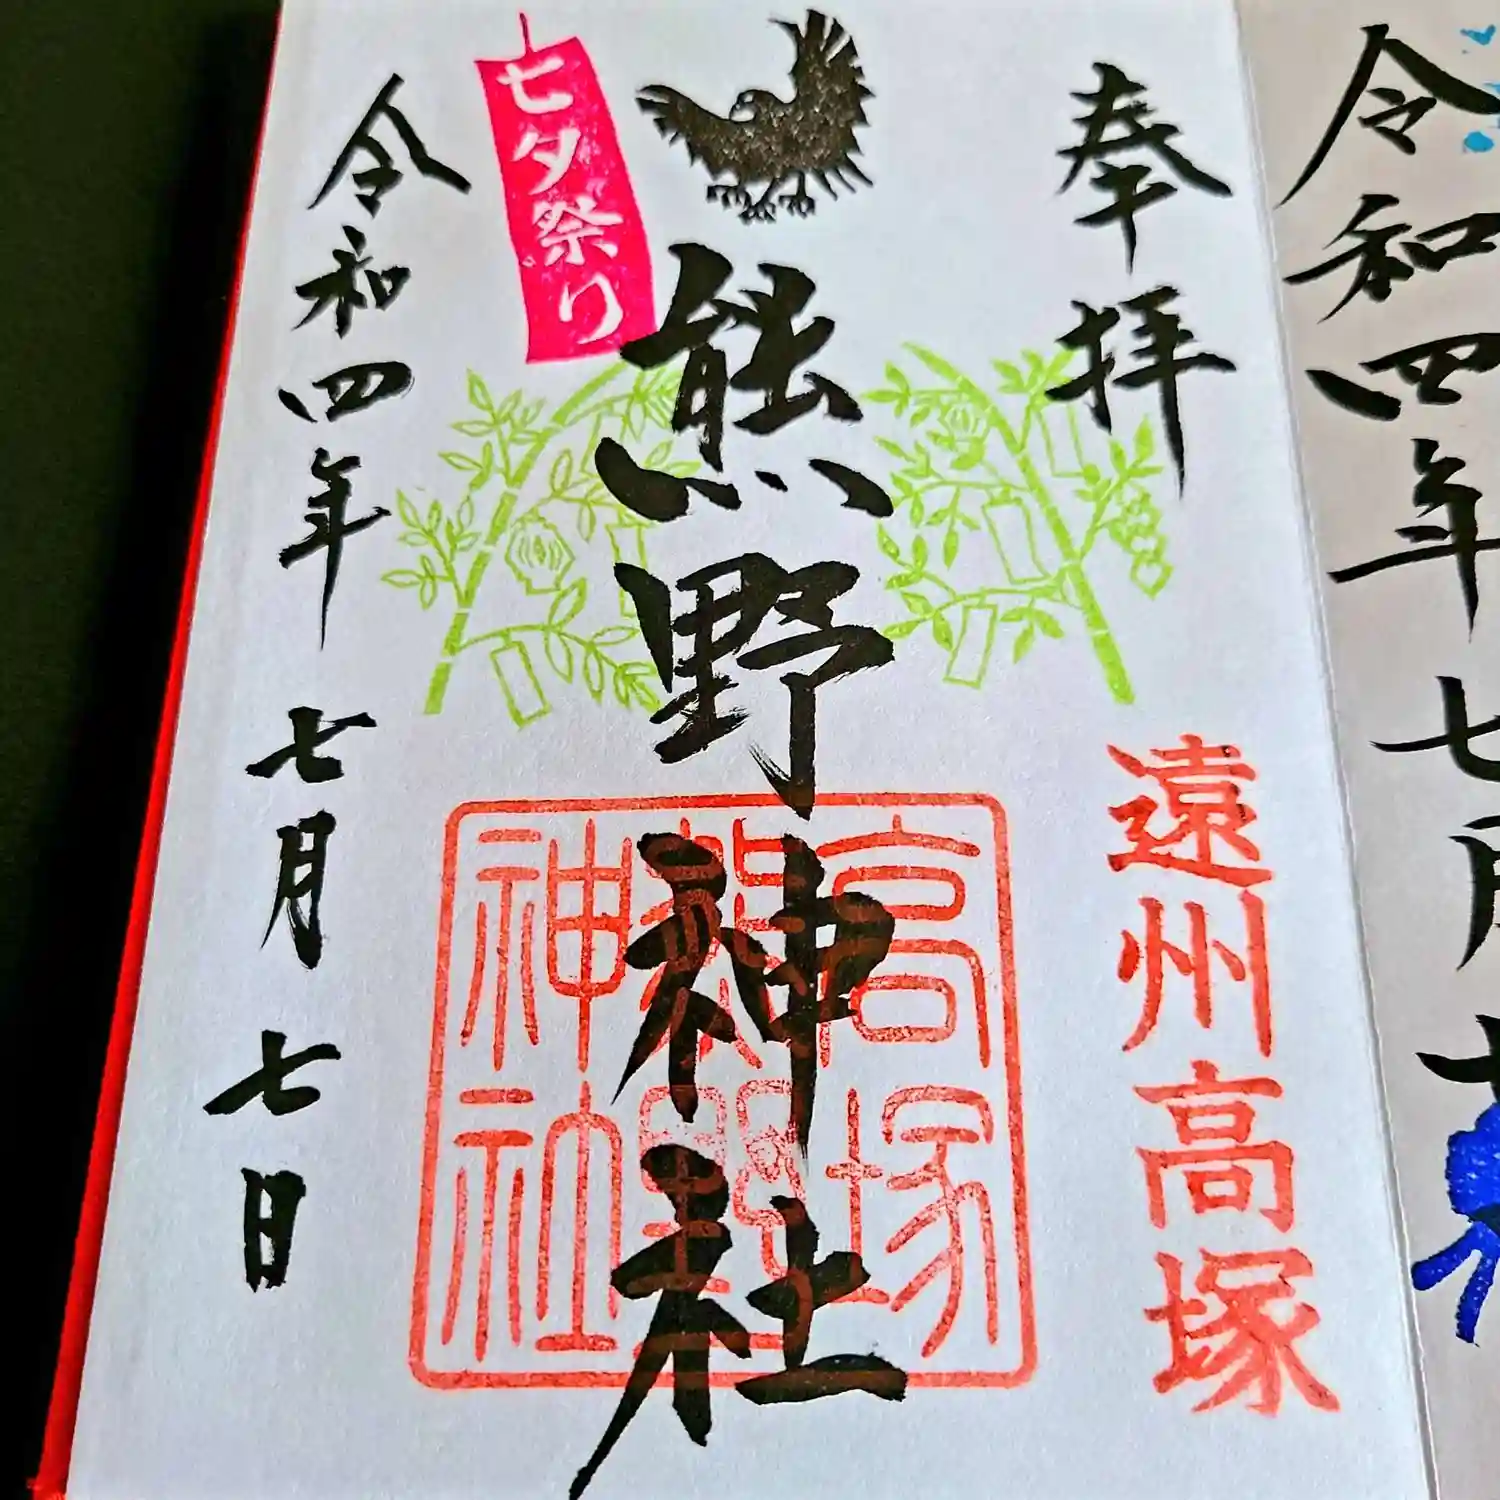 奉拝
遠州高塚
熊野神社
高塚
熊野
神社
七夕祭り
令和四年 七月 七日
令和四年 七月